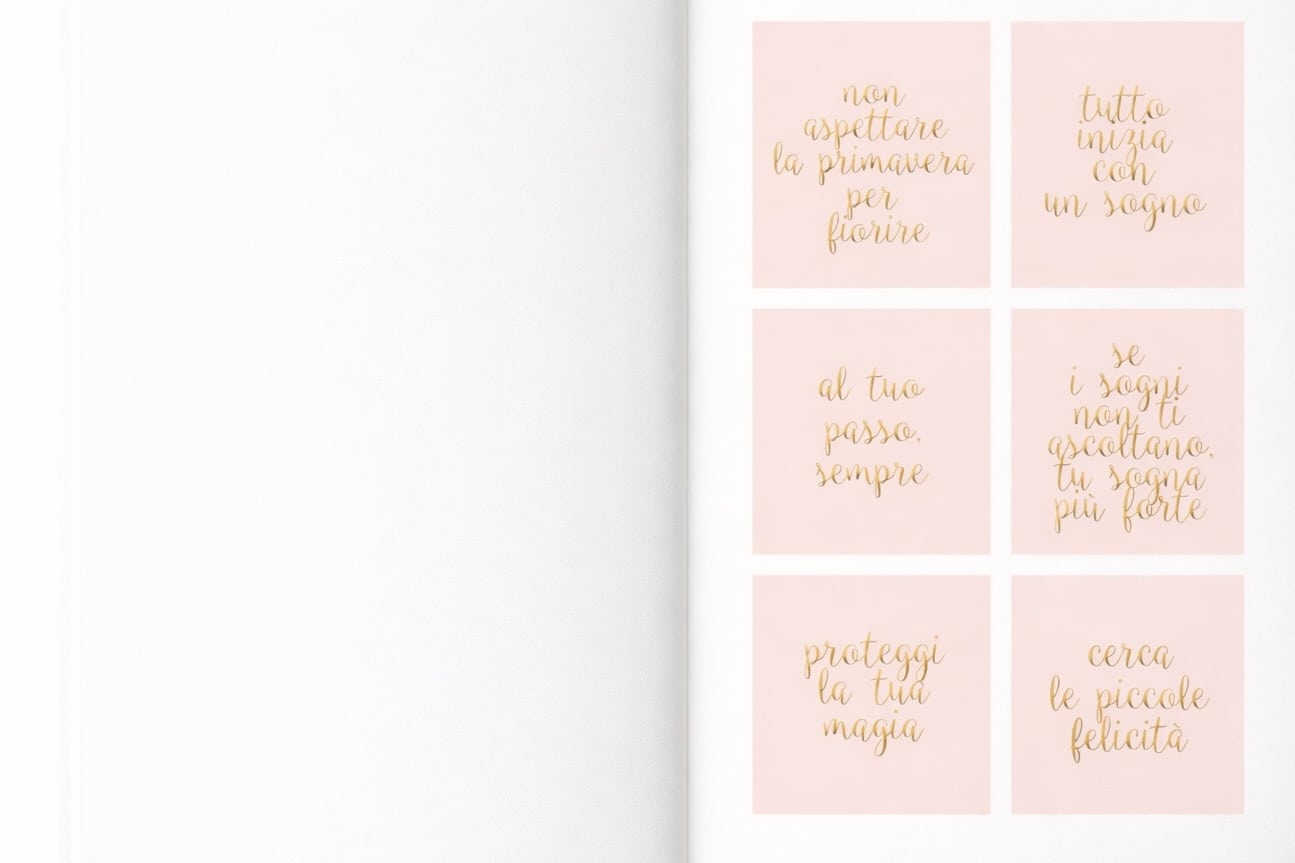 non
aspettare
la primavera
per
fiorire
tutto
inizia
con
un sogno
al tuo
passo,
sempre
se
i sogni
non ti
ascoltano,
tu sogna
più forte
proteggi
la tua
magia
cerca
le piccole
felicità